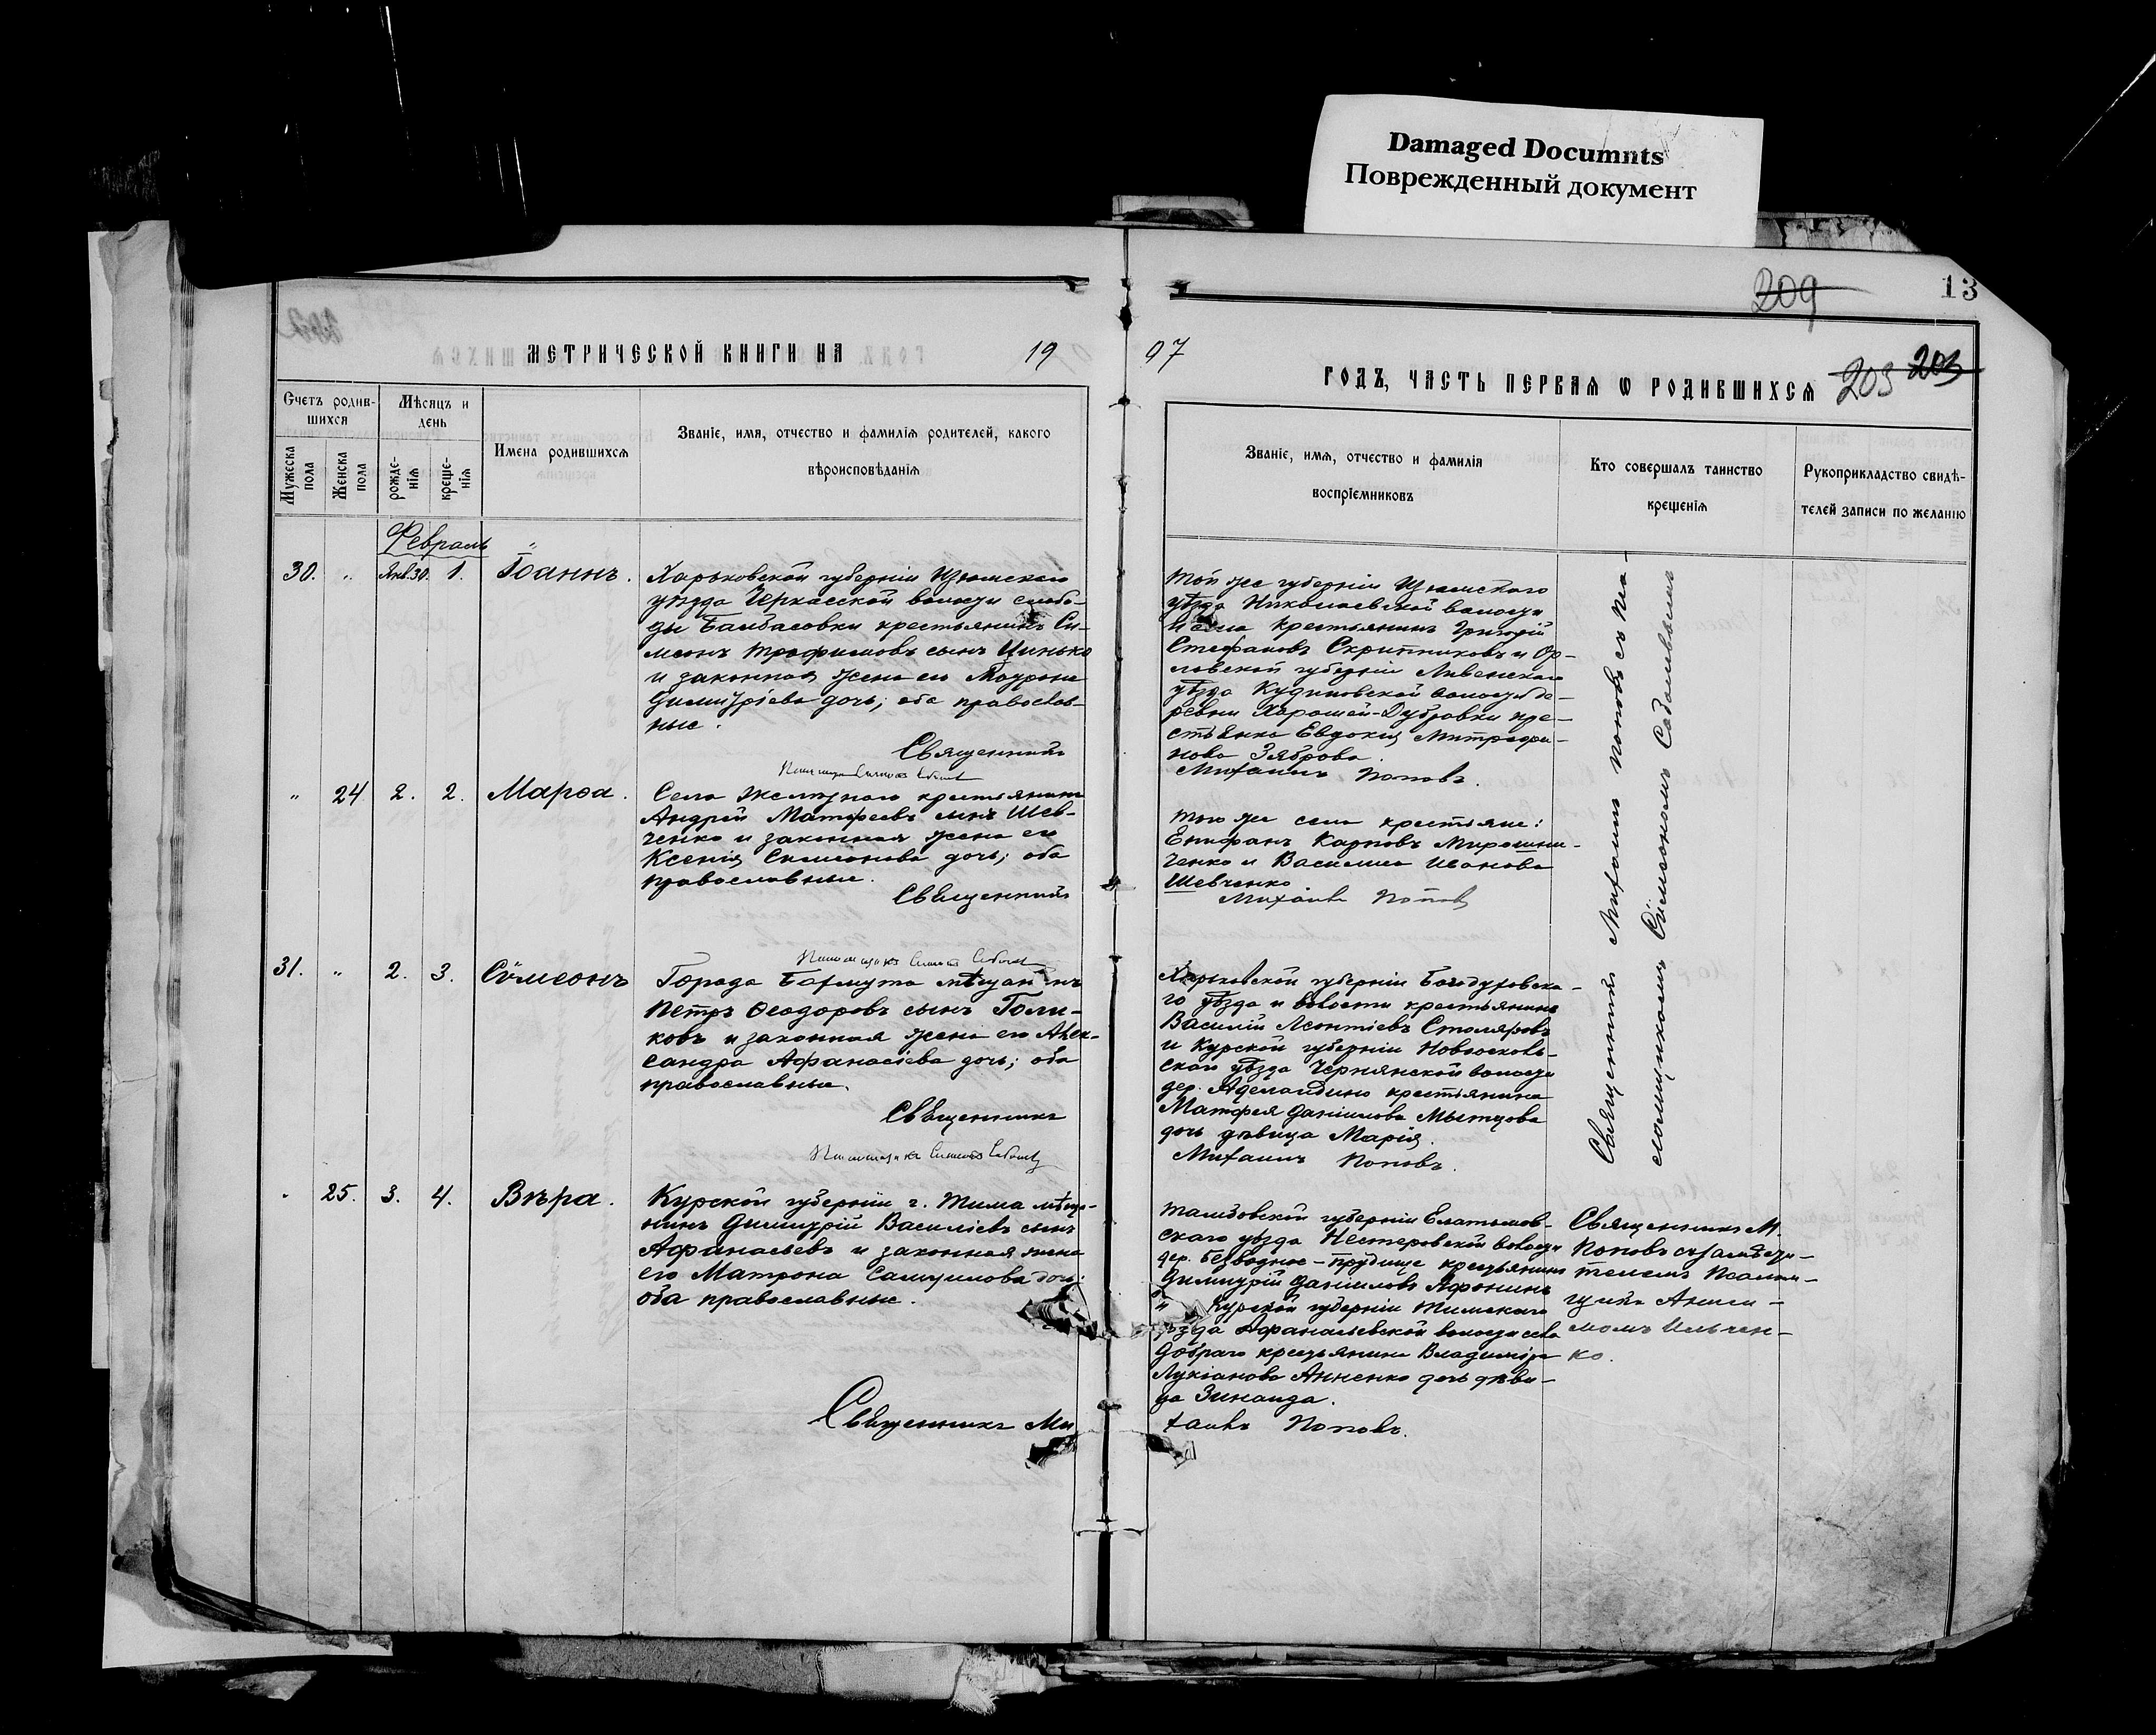 Damaged Documnts
Поврежденный документ
209
13
МЕТРИЧЕСКОЙ КНИГИ НА 19
07 ГОДЪ, ЧАСТЬ ПЕРВАЯ Ѡ РОДИВШИХСЯ
203 203
Счетъ родив-
шихся
Мужеска пола
Женска пола
Мѣсяцъ и
день
рожде-
нія
креще-
нія
Имена родившихся
Званіе, имя, отчество и фамилія родителей, какого
вѣроисповѣданія
Званіе, имя, отчество и фамилія
воспріемниковъ
Кто совершалъ таинство
крещенія
Рукоприкладство свидѣ-
телей записи по желанію
Февраль
30. " Янв. 30. 1. Іоаннъ.
Харьковской губерніи Изюмскаго
уѣзда Черкасской волости слобо-
ды Бамбасовки крестьянинъ Си-
меонъ Трофимовъ сынъ Цинько
и законная жена его Матрона
Димитріева дочь; оба православ-
ные.
Священникъ
Той же губерніи Изюмскаго
уѣзда Николаевской волости
и села крестьянинъ Григорій
Стефановъ Скрипниковъ и Ор-
ловской губерніи Ливенскаго
уѣзда Кудиновской волости де-
ревни Хорошей-Дубровки кре-
стьянка Евдокія Митрофа-
нова Зяброва.
Михаилъ Поповъ.
" 24 2. 2. Марѳа.
Села Желѣзнаго крестьянинъ
Андрей Матфеевъ сынъ Шев-
ченко и законная жена его
Ксенія Симеонова дочь; оба
православные.
Священникъ
Того же села крестьяне:
Епифанъ Карповъ Мирошни-
ченко и Василиса Иванова
Шевченко
Михаилъ Поповъ
31. " 2. 3. Сѵмеонъ
Города Бахмута мѣщанинъ
Петръ Ѳеодоровъ сынъ Голи-
ковъ и законная жена его Алек-
сандра Афанасіева дочь; оба
православные.
Священникъ
Харьковской губерніи Богодуховска-
го уѣзда и волости крестьянинъ
Василій Леонтіевъ Столяровъ
и Курской губерніи Новоосколь-
скаго уѣзда Чернянской волости
дер. крестьянина
Матфея Даніилова Мытцова
дочь дѣвица Марія.
Михаилъ Поповъ.
Священникъ Михаилъ Поповъ съ пса-
ломщикомъ Сѵмеономъ
" 25. 3. 4. Вѣра.
Курской губерніи г. Тима мѣща-
нинъ Димитрій Василіевъ сынъ
Афанасьевъ и законная жена
его Матрона Самуилова дочь.
оба православные.
Священникъ Ми
Тамбовской губерніи Елатомов-
скаго уѣзда Нестеровской волости
дер. Безводное-прудище крестьянинъ
Димитрій Даніиловъ Афонинъ
и Курской губерніи Тимскаго
уѣзда Афанасьевской волости села
Добраго крестьянина Владиміра
Лукіанова Анненко дочь дѣви-
ца Зинаида.
хаилъ Поповъ.
Священникъ М.
Поповъ съ замѣсти-
телемъ Псалом-
щика Аниси-
момъ Ильчен-
ко.